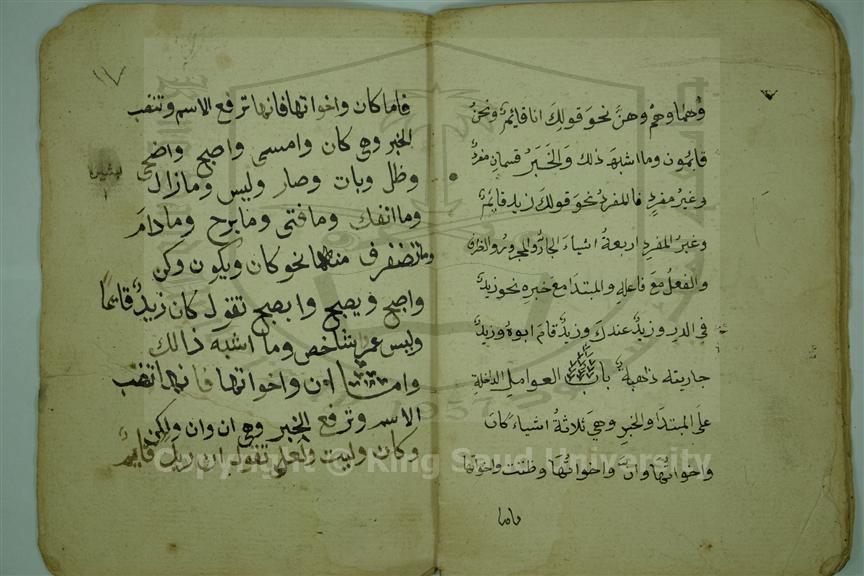 وهما وهم وهن نحو قولك انا قايم ونحن
قايمون وما اشبه ذلك والخبر قسمان مفرد
وغير مفرد فالمفرد نحو قولك زيد قايم
وغير المفرد اربعة اشياء الجار والمجرور والظرف
والفعل مع فاعله والمبتدا مع خبره نحو زيد
في الدار وزيد عندك وزيد قام ابوه وزيد
جاريته ذاهبة باب العوامل الداخلة
على المبتدا والخبر وهي ثلاثة اشياء كان
واخواتها وان واخواتها وظننت واخواتها
فاما
١٧
فاما كان واخواتها فانها ترفع الاسم وتنصب
الخبر وهي كان وامسى واصبح واضحى
وظل وبات وصار وليس ومازال
وما انفك وما فتى وما برح وما دام
وما تصرف منها نحو كان ويكون وكن
واصبح ويصبح واصبح تقول كان زيد قايما
وليس عمر شاخص وما اشبه ذالك
واما ان واخواتها فانها تنصب
الاسم وترفع الخبر وهي ان وان ولكن
وكان وليت ولعل تقول ان زيد قايم
Copyright © King Saud University
1957